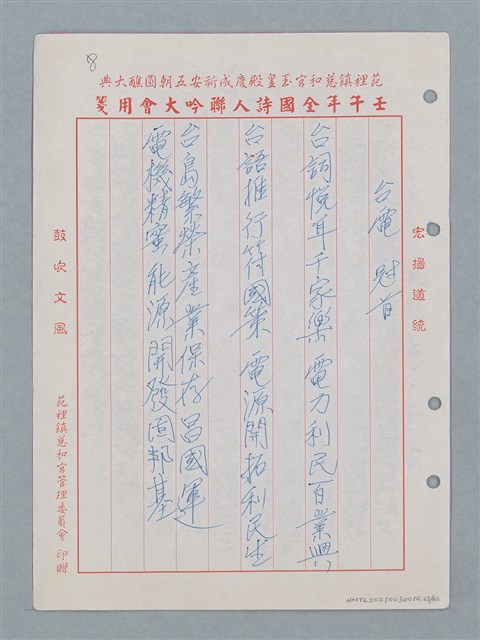 8
苑裡鎮慈和宮玉皇殿慶成祈安五朝圓醮大典
壬午年全國詩人聯吟大會用箋
宏揚道統
台電 冠首
台詞悅耳千家樂 電力利民百業興
台語推行符國策 電源開拓利民生
台島繁榮產業保存昌國運
電機精蜜能源開發固邦基
鼓吹文風
苑裡鎮慈和宮管理委員會 印贈